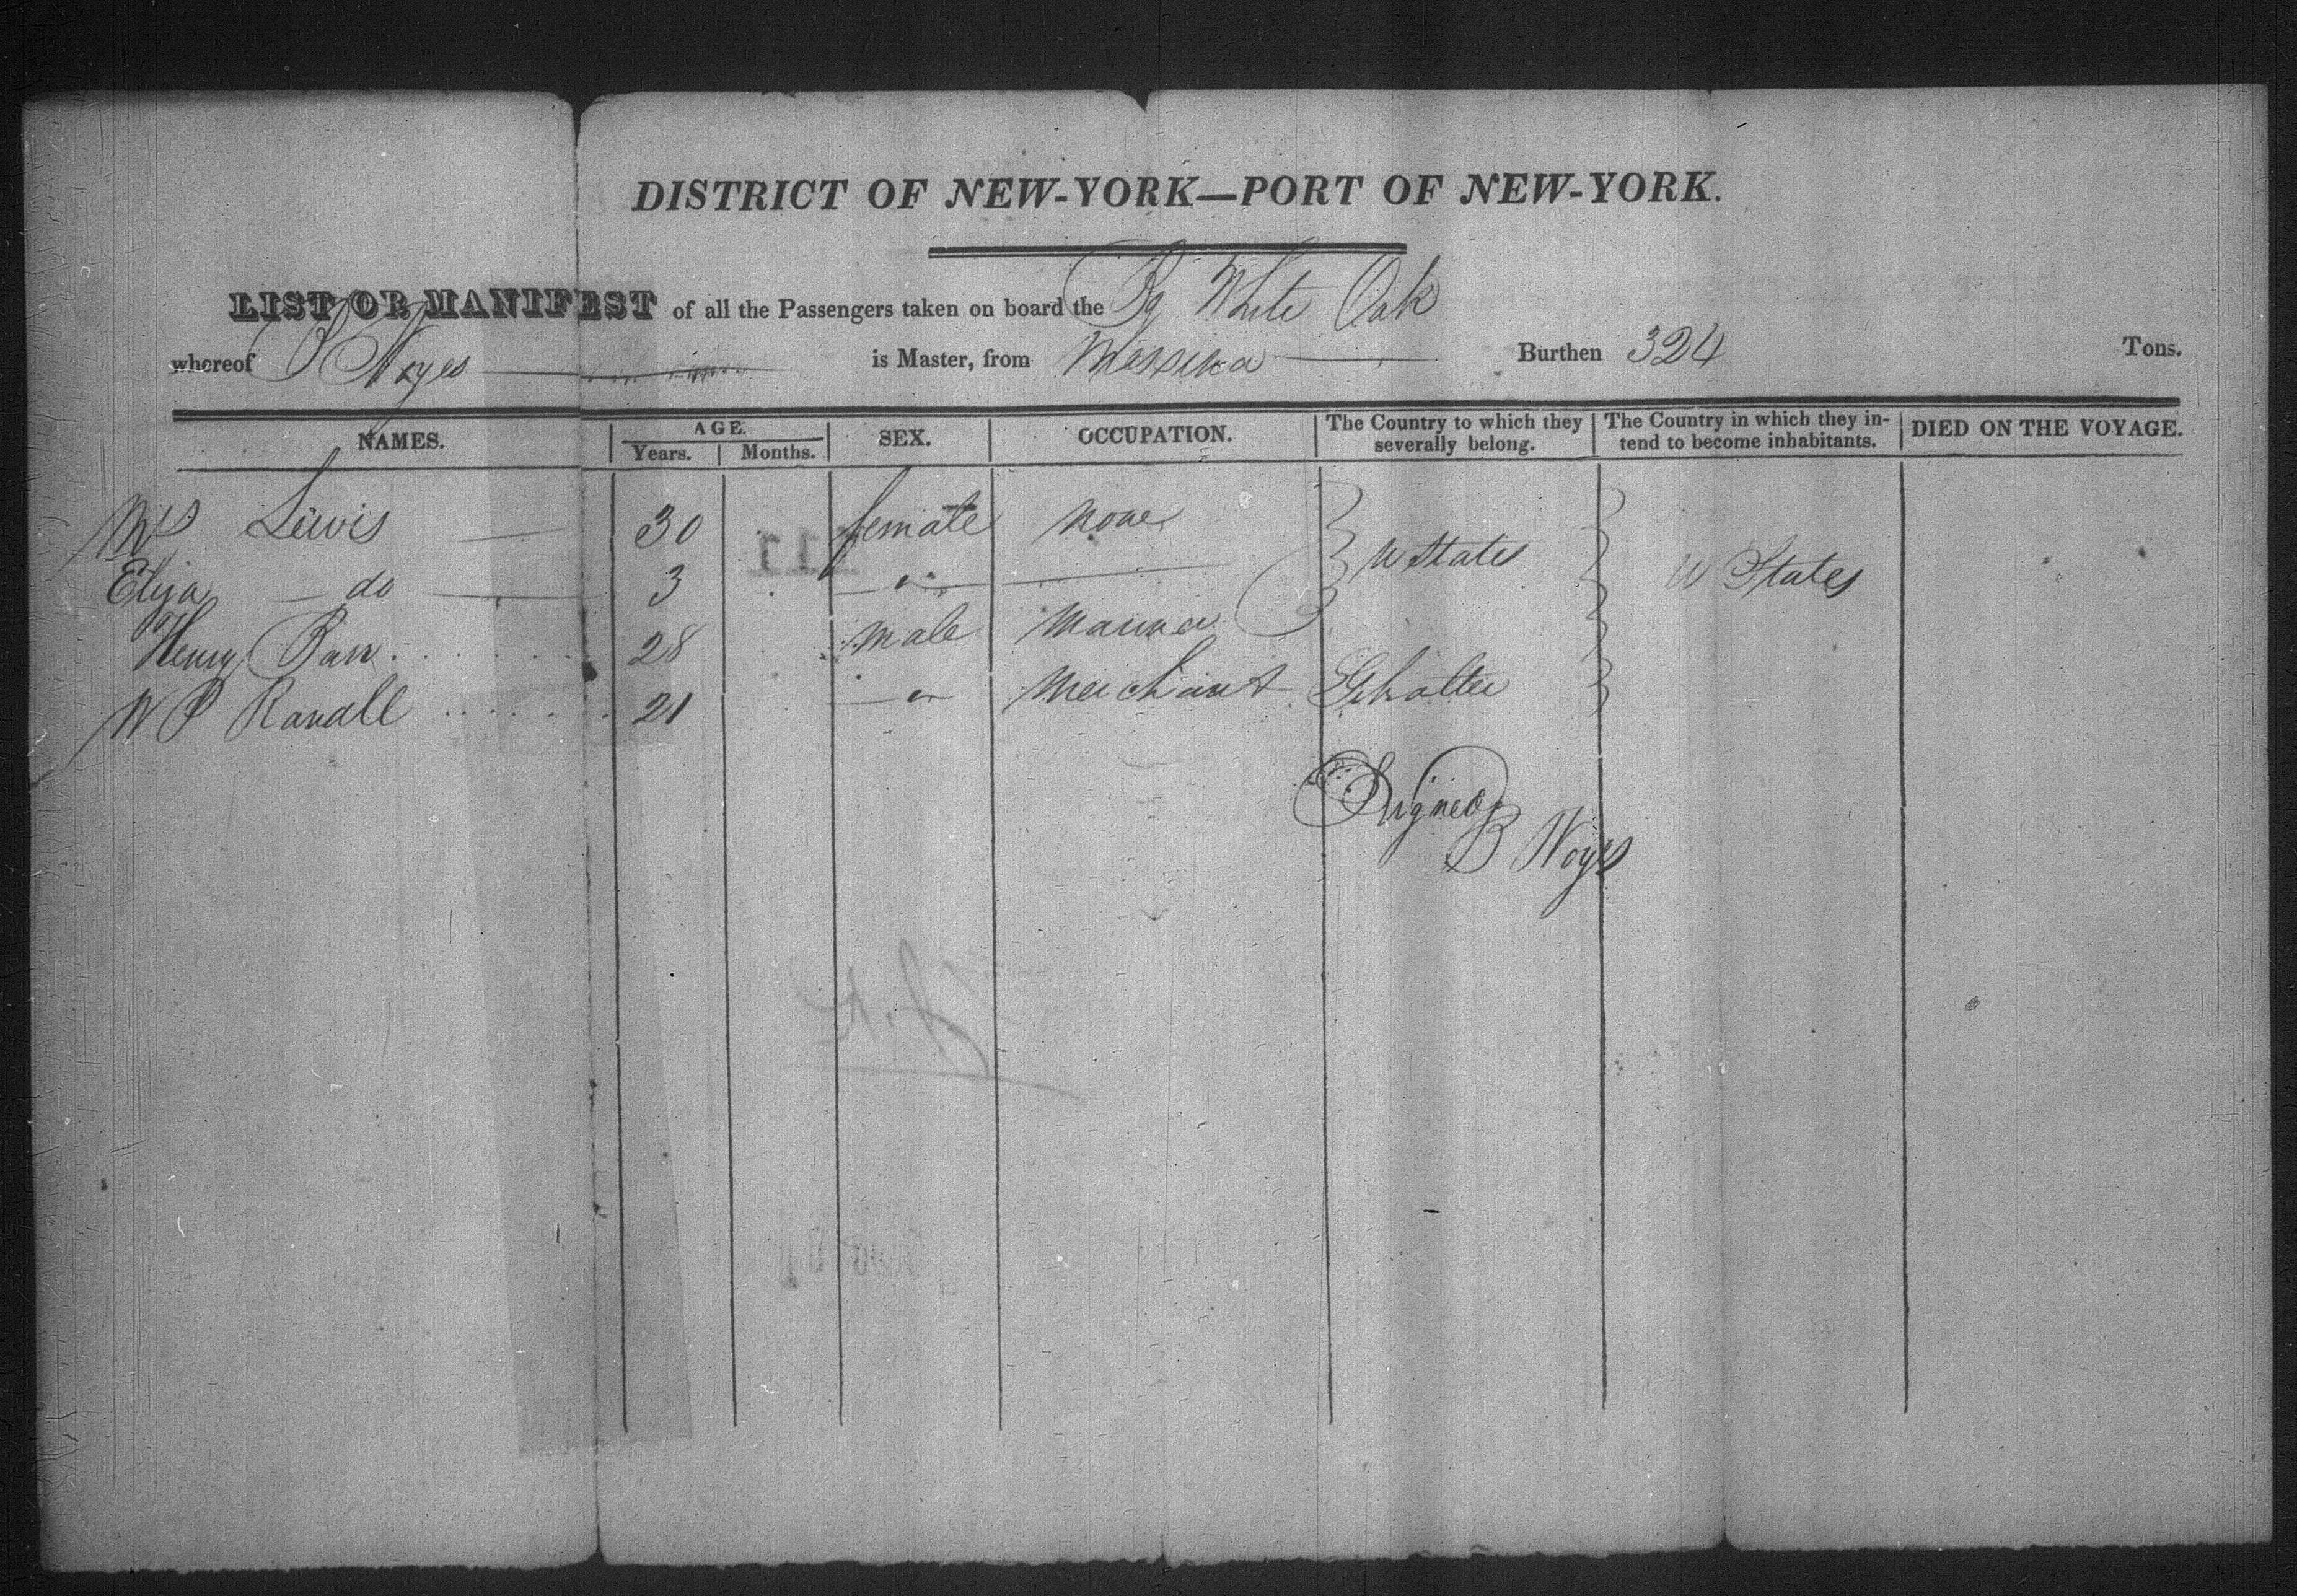 DISTRICT OF NEW-YORK—PORT OF NEW-YORK.
LIST OR MANIFEST of all the Passengers taken on board the Bg White Oak
whereof B Noyes is Master, from Messina Burthen 324 Tons.
NAMES. AGE. Years. Months. SEX. OCCUPATION. The Country to which they severally belong. The Country in which they intend to become inhabitants. DIED ON THE VOYAGE.
Mrs Lewis 30 female none
Eliza do 3 U States U States
Henry Barr 28 male mariner
W P Randall 21 merchant
Signed
B Noyes